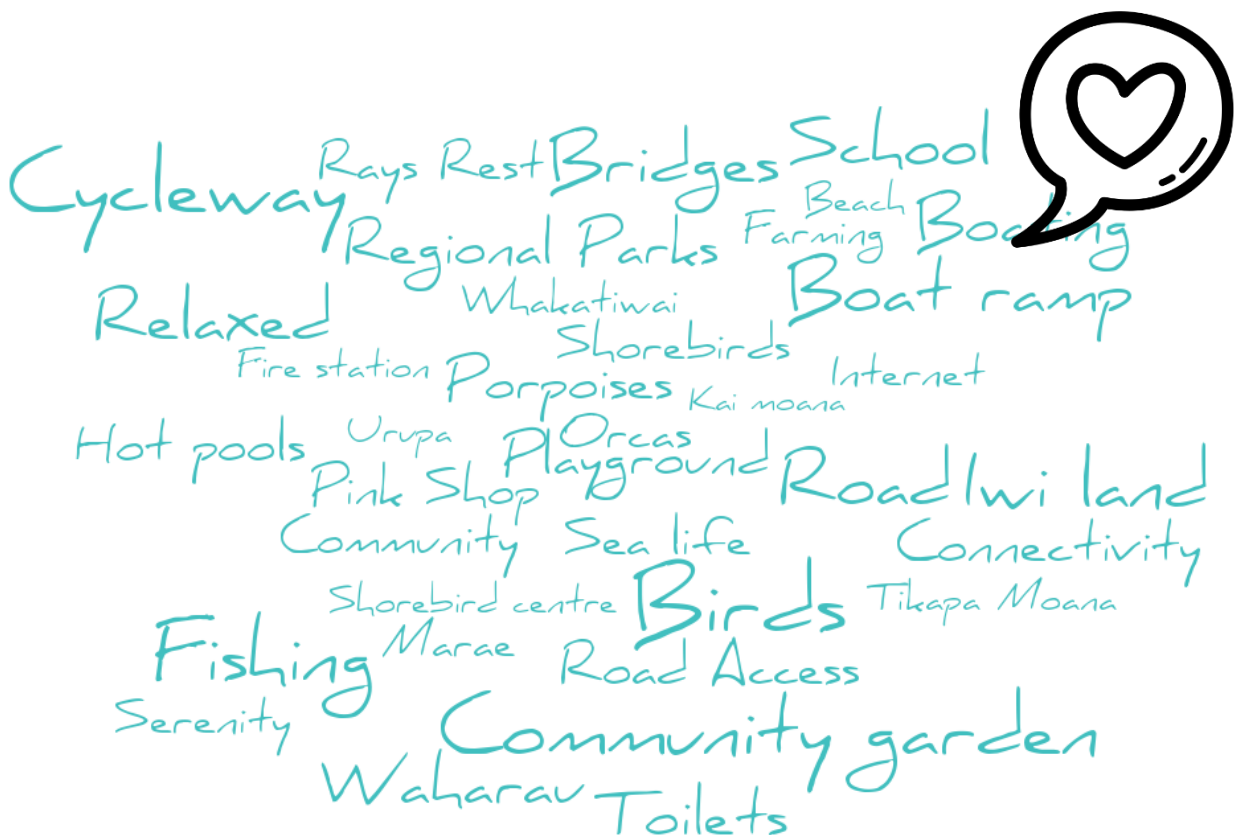 School
Cycleway
Rays Rest
Bridges
Beach
Boating
Farming
Regional Parks
Whakatiwai
Boat ramp
Relaxed
Shorebirds
Fire station
Porpoises
Internet
Kai moana
Hot pools
Urupa
Orcas
Playground
Pink Shop
Road
Iwi land
Community
Sea life
Connectivity
Shorebird centre
Birds
Tikapa Moana
Fishing
Marae
Road Access
Serenity
Community garden
Waharau
Toilets